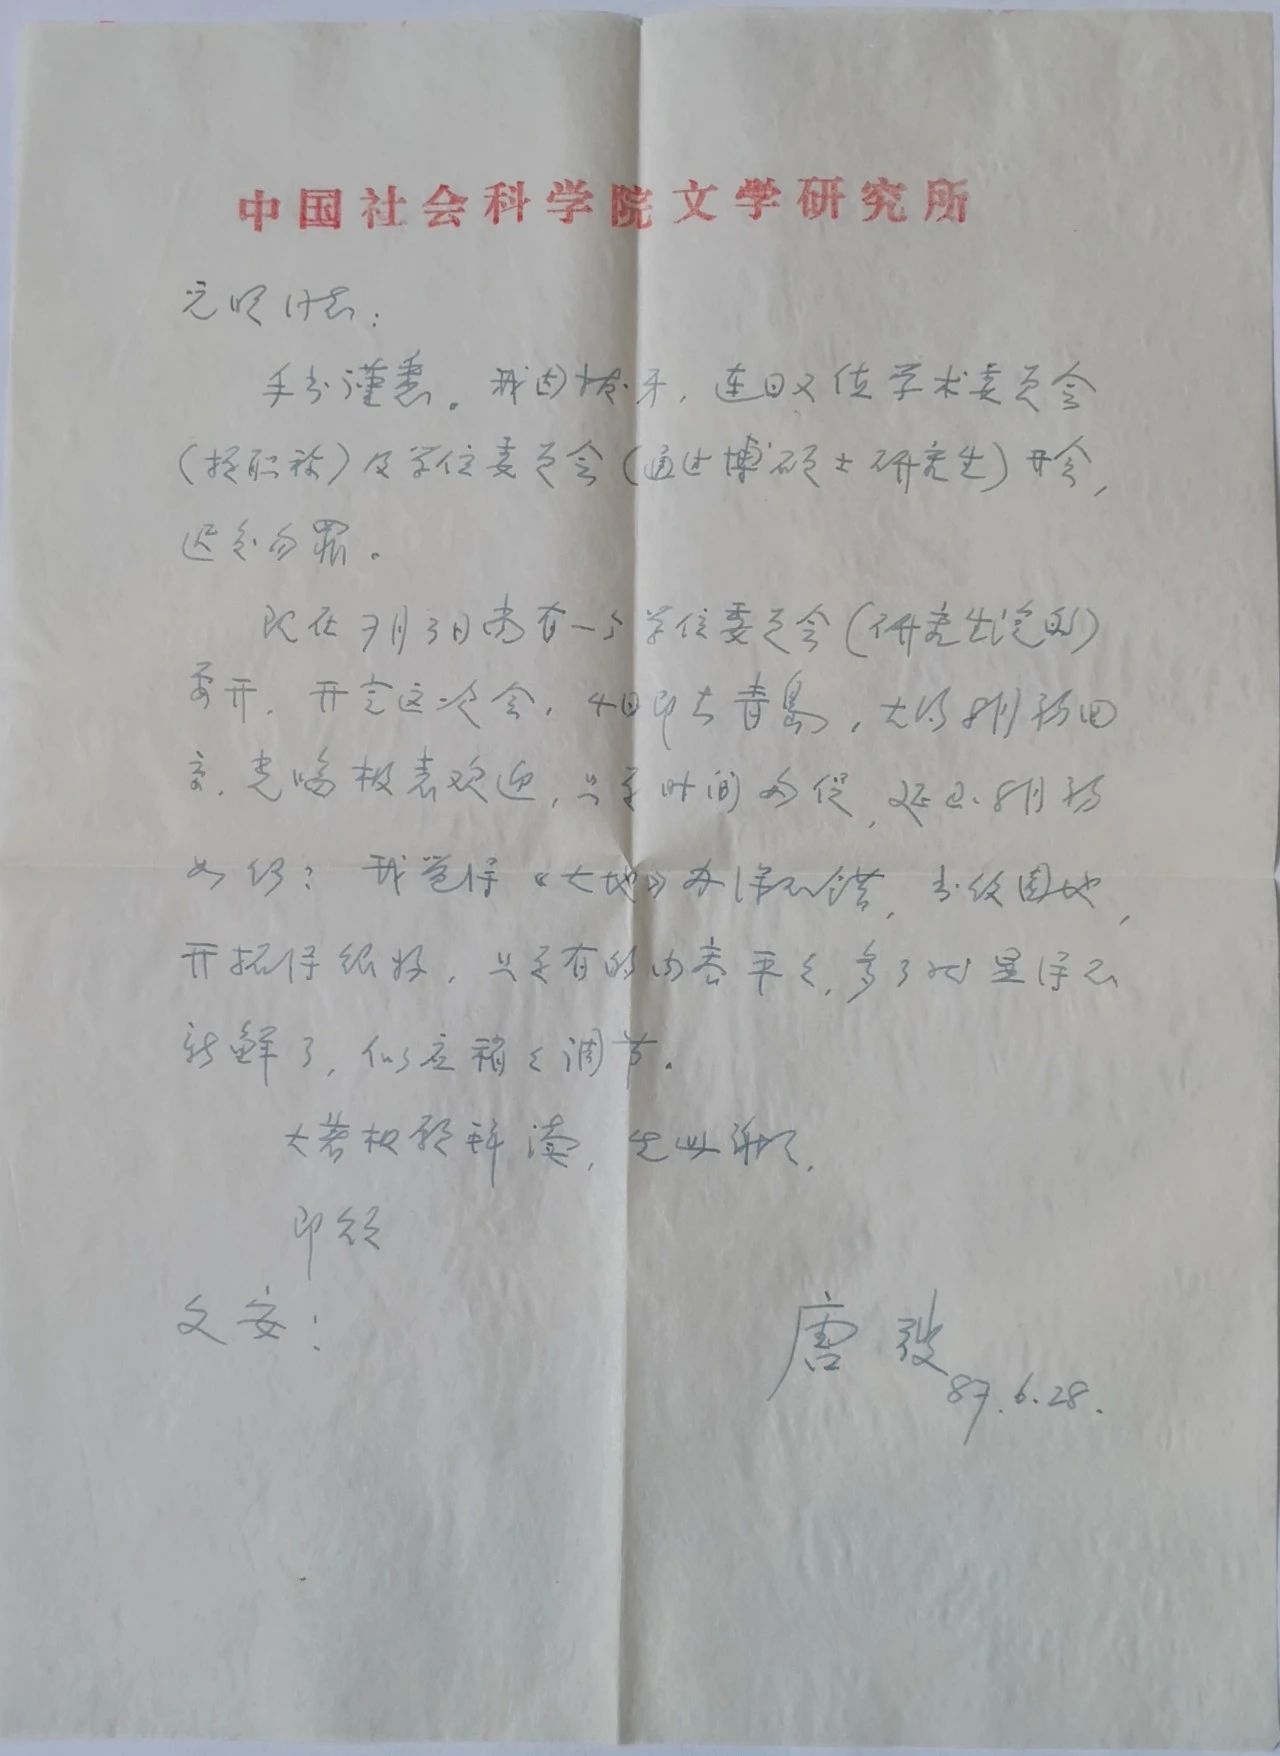 中国社会科学院文学研究所
元明同志：
手书谨悉。我因拔牙，连日又值学术委员会
（提职称）及学位委员会（通过博硕士研究生）开会，
迟复勿罪。
现在7月3日尚有一个学位委员会（研究生院的）
要开，开完这次会，4日即去青岛，大约8月初回
京，光临极表欢迎，只是时间匆促，延至8月初
如何？我觉得《大地》办得不错，书纹园地，
开拓得很好，只是有的内容平平，多了就显得不
新鲜了，似应稍稍调节。
大著极愿拜读，先此谢谢。
即颂
文安！
唐弢
87.6.28.